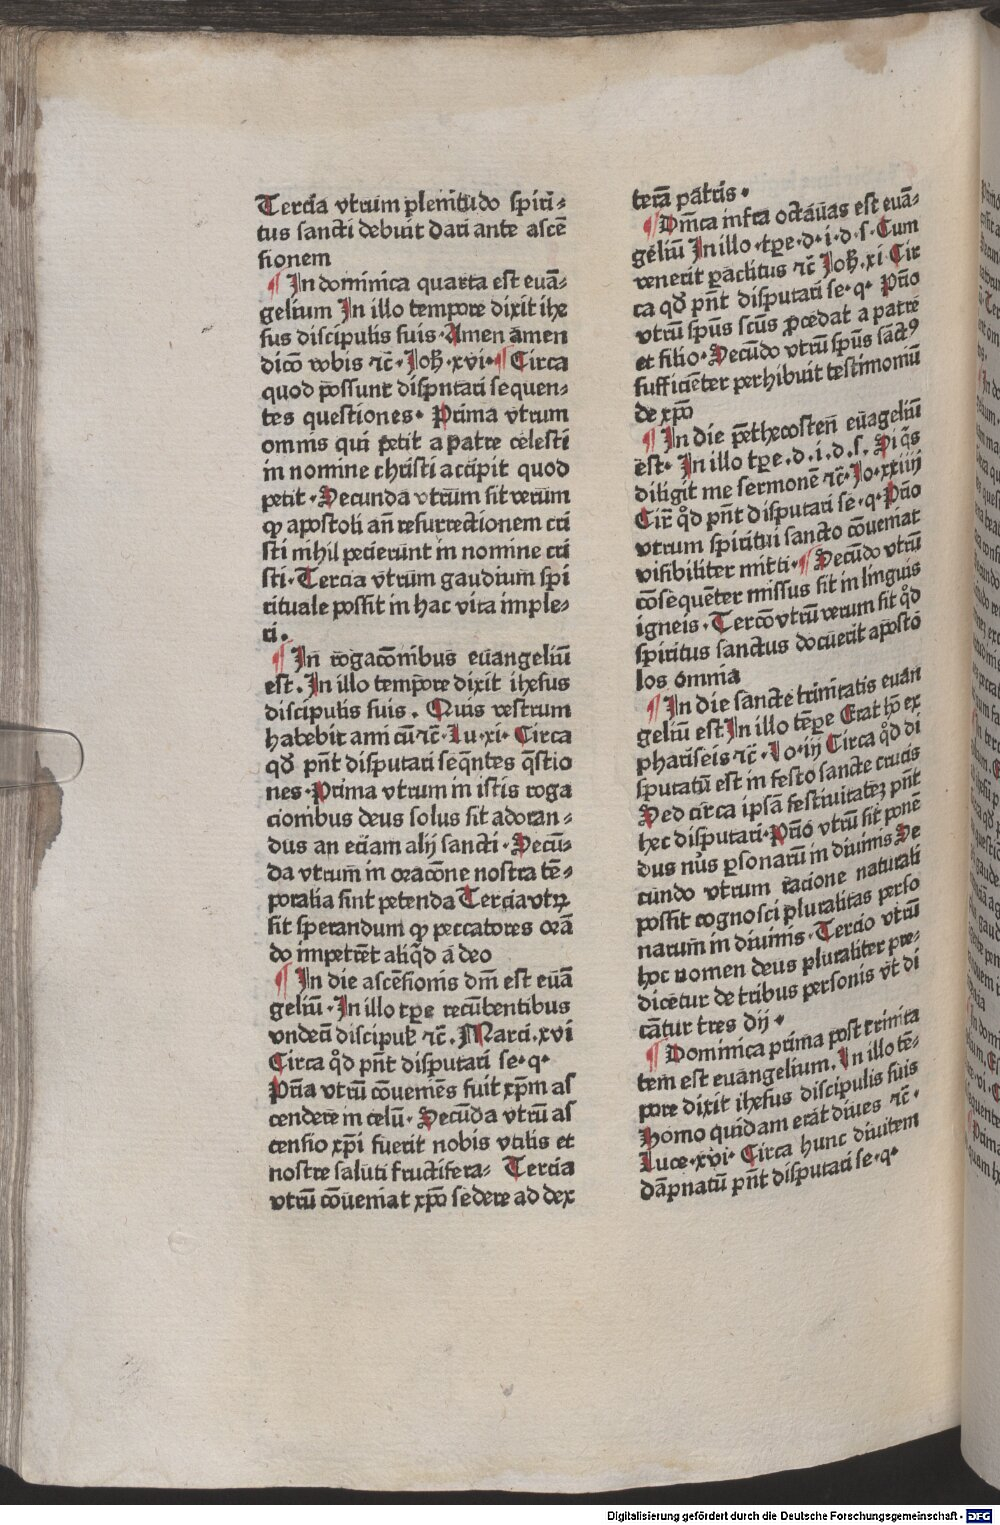 Tercia vtrum plenitudo spiri-
tus sancti debuit dari ante ascē
sionem
¶ In dominica quarta est euā-
gelium In illo tempore dixit ihe
sus discipulis suis· Amen amen
dicō vobis ⁊c̄· Joh̄·xvi·¶ Circa
quod possunt dispntari sequen-
tes questiones· Prima vtrum
omnis qui petit a patre celesti
in nomine christi accipit quod
petit·Secunda vtrum sit verum
ꝙ apostoli an̄ resurrectionem cri
sti nihil pecierunt in nomine cri
sti·Tercia vtrum gaudium spi
rituale possit in hac vita imple-
ri.
¶ In rogacōnibus euangeliū
est. In illo tempore dixit ihesus
discipulis suis. Quis vestrum
habebit ami cū ⁊c̄·Lu·xi· Circa
qd̄ pn̄t disputari seq̄ntes q̄stio
nes·Prima vtrum in istis roga
cionibus deus solus sit adoran-
dus an eciam alij sancti·Secū-
da vtrum in oracōne nostra tē-
poralia sint petenda Tercia vtꝝ
sit sperandum ꝙ peccatores orā
do impetrēt aliq̇d a deo
¶ In die ascēsionis dn̄i est euā
geliū·In illo tꝑe recūbentibus
vndecī discipul' ⁊c̄. Marci.xvi
Circa q̊d pn̄t disputari se·q·
Pn̄a vtrū cōueniēs fuit xp̄m as
cendere in celū·Secūda vtrū as
censio xp̄i fuerit nobis vtilis et
nostre saluti fructifera- Tercia
vtrū cōueniat xp̄o sedere ad dex
terā patris·
¶ Dn̄ica infra octauas est euā-
geliū In illo·tꝑe·d·i·d·s·Cum
venerit paclitus ⁊c̄ Joh̄.xi·Cir
ca qd̄ pn̄t disputari se·q· Prīo
vtrū sp̄us scūs ꝓcedat a patre
et filio·Secūdo vtrū sp̄us sāctꝰ
sufficiēter perhibuit testimoniū
de xp̄o
¶ In die pēthecosten̄ euāgeliū
est· In illo tꝑe.d.i.d.s. Si q̇s
diligit me sermonē ⁊c̄·Jo·xxiiij
Circ̄ q̊d pn̄t disputari se·q·Prīo
vtrum spiritui sancto cōueniat
visibiliter mitti·¶Secūdo vtrū
cōsequēter missus sit in linguis
igneis·Tercō vtrū verum sit q̊d
spiritus sanctus docuerit aposto
los omnia
¶ In die sancte trinitatis euan
geliū est In illo tēꝑe Erat hō ex
phariseis ⁊c̄·Jo·iij Circa q̊d di
sputatū est in festo sancte crucis
Sed circa ipsā festiuitatē pn̄t
hec disputari·Prīo vtrū sit ponē
dus nūs ꝑsonarū in diuinis Se
cundo vtrum racione naturali
possit cognosci pluralitas perso
narum in diuinis·Tercio vtrū
hoc nomen deus pluraliter pre-
dicetur de tribus personis vt di
cātur tres dij·
¶ Dominica prima post trinita
tem est euangelium. In illo tē-
pore dixit ihesus discipulis suis
Homo quidam erat diues ⁊c̄·
Luce·xvi· Circa hunc diuitem
dāpnatū pn̄t disputari se·q·
Digitalisierung gefördert durch die Deutsche Forschungsgemeinschaft - DFG